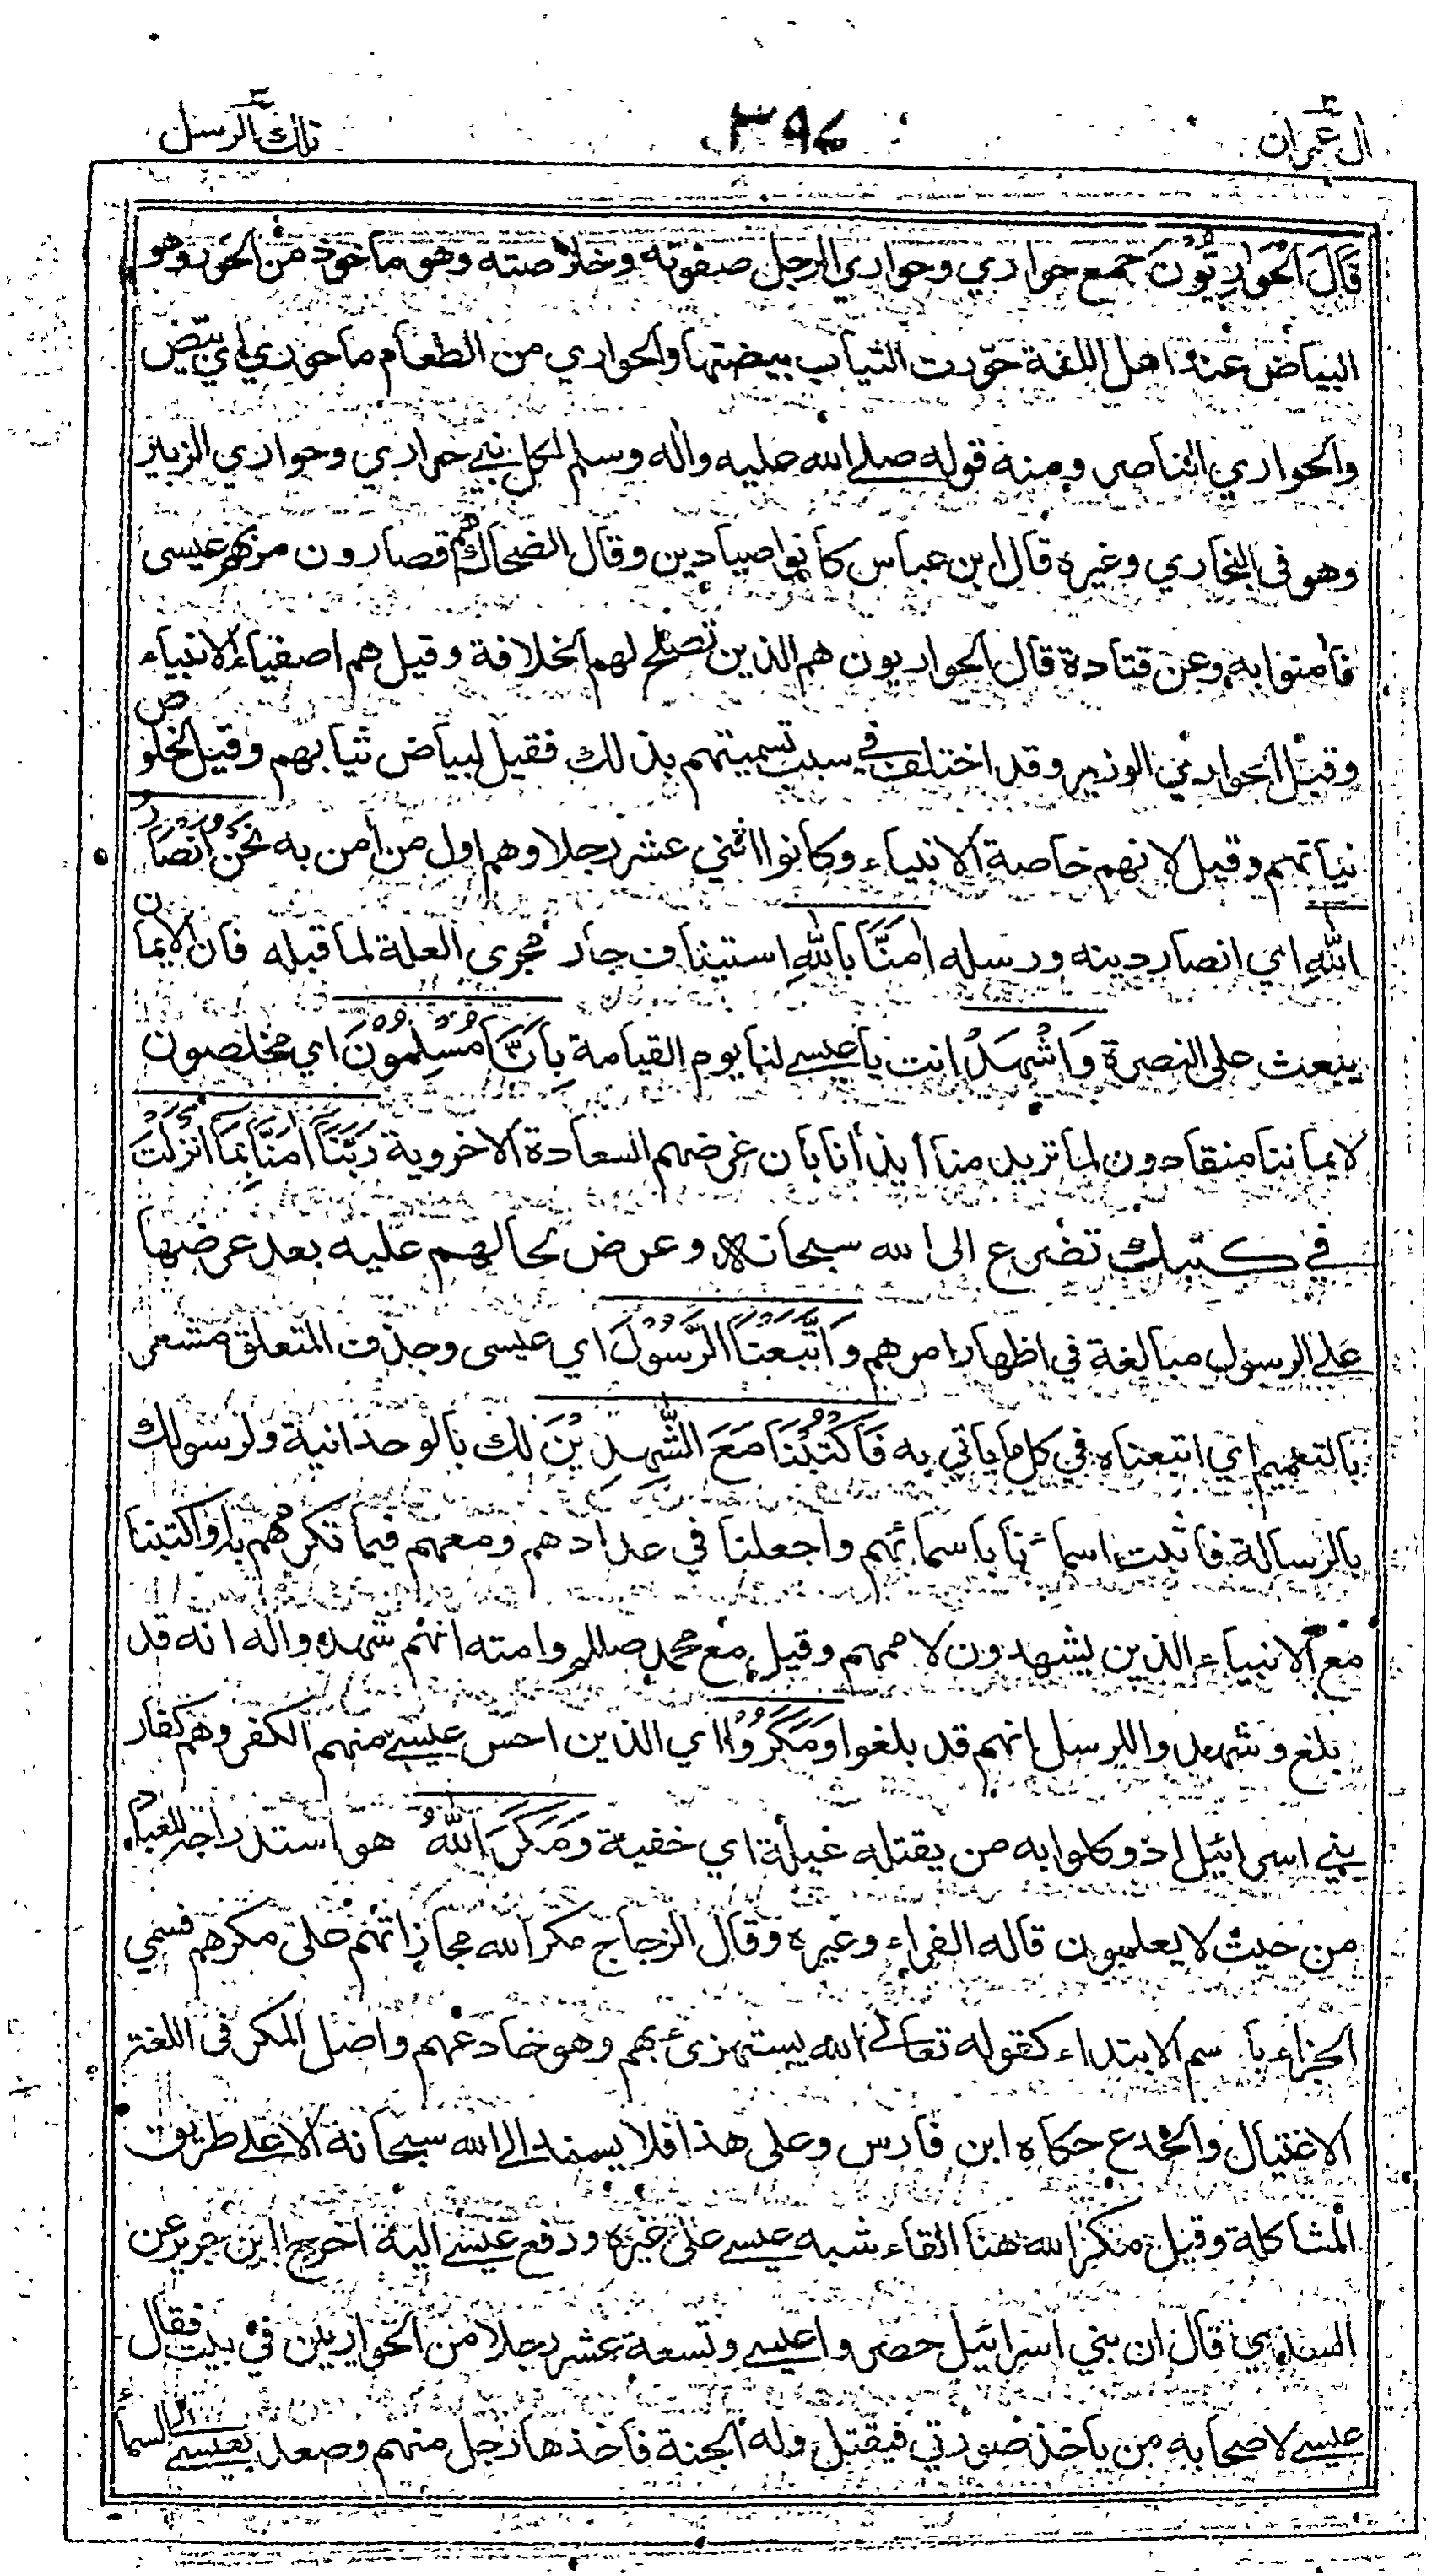 ال عمران ٣
٣٩٤
تلك الرسل ٣
قَالَ الْحَوَارِيُّوْنَ جمع حواري وحواري الرجل صفوته وخلاصته وهو ماخوذ من الحور وهو
البياض عند اهل اللغة حوّرت الثياب بيضتها والحواري من الطعام ما حوري اي بيّض
والحواري الناصر ومنه قوله صلى الله عليه واله وسلم لكل نبي حواري وحواري الزبير
وهو فى البخاري وغيره قال ابن عباس كانوا صيادين وقال الضحاك هم قصارون مر بهم عيسى
فأمنوا به وعن قتادة قال الحواريون هم الذين تصلح لهم الخلافة وقيل هم اصفياء الانبياء
وقيل الحواري الوزير وقد اختلف في سبب تسميتهم بذلك فقيل لبياض ثيابهم وقيل لخلوص
نياتهم وقيل لانهم خاصة الانبياء وكانوا اثني عشر رجلا وهم اول من أمن به نَحْنُ اَنْصَارُ
اللهِ اي انصار دينه ورسله اٰمَنَّا بِاللهِ استيناف جار مجرى العلة لما قبله فان الايمان
ينبعث على النصرة وَاشْهَدْ انت يا عيسى لنا يوم القيامة بِاَنَّا مُسْلِمُوْنَ اي مخلصون
لايماننا منقادون لما تريد منا أيذانا بان غرضهم السعادة الاخروية رَبَّنَا اٰمَنَّا بِمَا اَنْزَلْتَ
في كتبك تضرع الى الله سبحانه وعرض لحالهم عليه بعد عرضها
على الرسول مبالغة في اظهار امرهم وَاتَّبَعْنَا الرَّسُوْلَ اي عيسى وحذف المتعلق مشعر
بالتعميم اي اتبعناه في كل ما ياتي به فَاكْتُبْنَا مَعَ الشّٰهِدِيْنَ لك بالوحدانية ولرسولك
بالرسالة فاثبت اسماءنا باسمائهم واجعلنا في عدادهم ومعهم فيما تكرمهم به او اكتبنا
مع الانبياء الذين يشهدون لاممهم وقيل مع محمد صللم وامته انهم شهدوا له انه قد
بلغ وشهدوا للرسل انهم قد بلغوا وَمَكَرُوْا اي الذين احس عيسى منهم الكفر وهم كفار
بني اسرائيل اذ وكلوا به من يقتله غيلة اي خفية وَمَكَرَ اللهُ هو استدراجه للعباد
من حيث لا يعلمون قاله الفراء وغيره وقال الزجاج مكر الله مجازاتهم على مكرهم فسمي
الجزاء باسم الابتداء كقوله تعالى الله يستهزئ بهم وهو خادعهم واصل المكر فى اللغة
الاغتيال والخدع حكاه ابن فارس وعلى هذا فلا يسند الى الله سبحانه الا على طريق
المشاكلة وقيل مكر الله هنا القاء شبه عيسى على غيره ورفع عيسى اليه اخرج ابن جرير عن
السدي قال ان بني اسرائيل حصروا عيسى وتسعة عشر رجلا من الحواريين في بيت فقال
عيسى لاصحابه من ياخذ صورتي فيقتل وله الجنة فاخذها رجل منهم وصعد بعيسى الى السماء